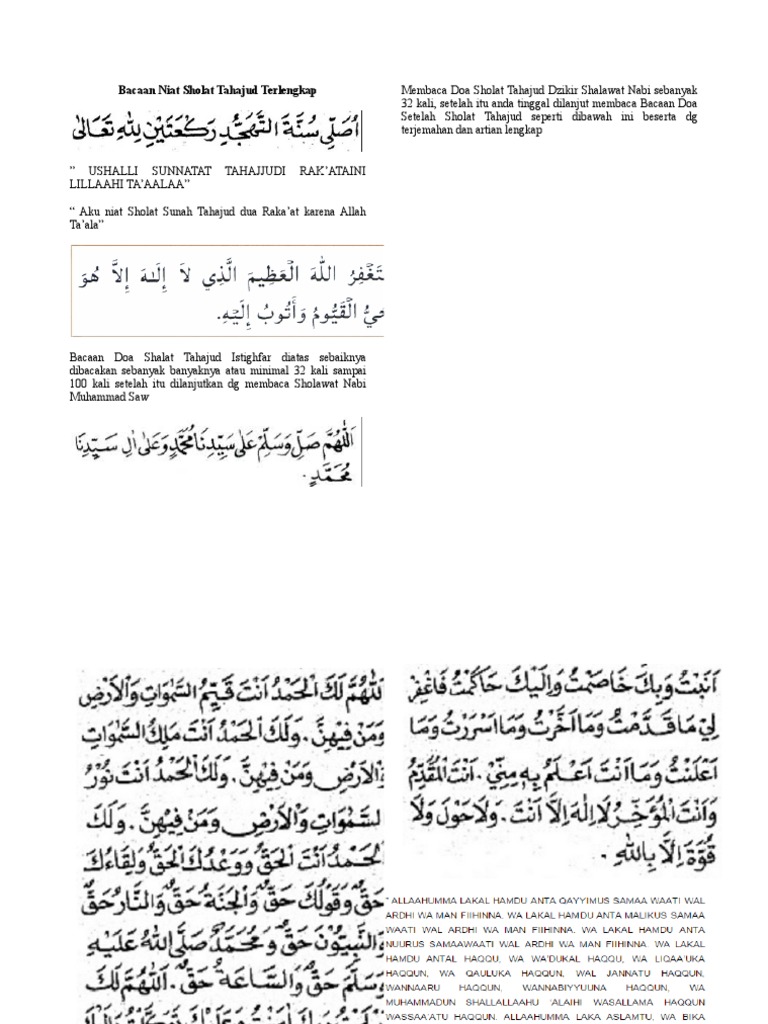 Bacaan Niat Sholat Tahajud Terlengkap
اُصَلِّى سُنَّةَ التَّهَجُّدِ رَكْعَتَيْنِ لِلّٰهِ تَعَالٰى
” USHALLI SUNNATAT TAHAJJUDI RAK’ATAINI
LILLAAHI TA’AALAA”
“ Aku niat Sholat Sunah Tahajud dua Raka’at karena Allah
Ta’ala”
تَغْفِرُ اللهَ الْعَظِيمَ الَّذِي لاَ إِلَـٰهَ إِلاَّ هُوَ
الْقَيُّومُ وَأَتُوبُ إِلَيْهِ.
Bacaan Doa Shalat Tahajud Istighfar diatas sebaiknya
dibacakan sebanyak banyaknya atau minimal 32 kali sampai
100 kali setelah itu dilanjutkan dg membaca Sholawat Nabi
Muhammad Saw
اَللّٰهُمَّ صَلِّ وَسَلِّمْ عَلٰى سَيِّدِنَا مُحَمَّدٍ وَعَلٰى اٰلِ سَيِّدِنَا
مُحَمَّدٍ.
Membaca Doa Sholat Tahajud Dzikir Shalawat Nabi sebanyak
32 kali, setelah itu anda tinggal dilanjut membaca Bacaan Doa
Setelah Sholat Tahajud seperti dibawah ini beserta dg
terjemahan dan artian lengkap
للّٰهُمَّ لَكَ الْحَمْدُ اَنْتَ قَيِّمُ السَّمٰوَاتِ وَالْاَرْضِ
وَمَنْ فِيْهِنَّ. وَلَكَ الْحَمْدُ اَنْتَ مَلِكُ السَّمٰوَاتِ
الْاَرْضِ وَمَنْ فِيْهِنَّ. وَلَكَ الْحَمْدُ اَنْتَ نُوْرُ
لسَّمٰوَاتِ وَالْاَرْضِ وَمَنْ فِيْهِنَّ. وَلَكَ
لْحَمْدُ اَنْتَ الْحَقُّ وَوَعْدُكَ الْحَقُّ وَلِقَاءُكَ
حَقٌّ وَقَوْلُكَ حَقٌّ وَالْجَنَّةُ حَقٌّ وَالنَّارُ حَقٌّ
وَالنَّبِيُّوْنَ حَقٌّ وَمُحَمَّدٌ صَلَّى اللهُ عَلَيْهِ
وَسَلَّمَ حَقٌّ وَالسَّاعَةُ حَقٌّ. اَللّٰهُمَّ لَكَ
اَنَبْتُ وَبِكَ خَاصَمْتُ وَاِلَيْكَ حَاكَمْتُ فَاغْفِرْ
لِيْ مَا قَدَّمْتُ وَمَا اَخَّرْتُ وَمَا اَسْرَرْتُ وَمَا
اَعْلَنْتُ وَمَا اَنْتَ اَعْلَمُ بِهِ مِنِّيْ. اَنْتَ الْمُقَدِّمُ
وَاَنْتَ الْمُؤَخِّرُ لَا اِلٰهَ اِلَّا اَنْتَ. وَلَا حَوْلَ وَلَا
قُوَّةَ اِلَّا بِاللهِ.
“ ALLAAHUMMA LAKAL HAMDU ANTA QAYYIMUS SAMAA WAATI WAL
ARDHI WA MAN FIIHINNA. WA LAKAL HAMDU ANTA MALIKUS SAMAA
WAATI WAL ARDHI WA MAN FIIHINNA. WA LAKAL HAMDU ANTA
NUURUS SAMAAWAATI WAL ARDHI WA MAN FIIHINNA. WA LAKAL
HAMDU ANTAL HAQQU, WA WA'DUKAL HAQQU, WA LIQAA'UKA
HAQQUN, WA QAULUKA HAQQUN, WAL JANNATU HAQQUN,
WANNAARU HAQQUN, WANNABIYYUUNA HAQQUN, WA
MUHAMMADUN SHALLALLAAHU 'ALAIHI WASALLAMA HAQQUN
WASSAA'ATU HAQQUN. ALLAAHUMMA LAKA ASLAMTU, WA BIKA